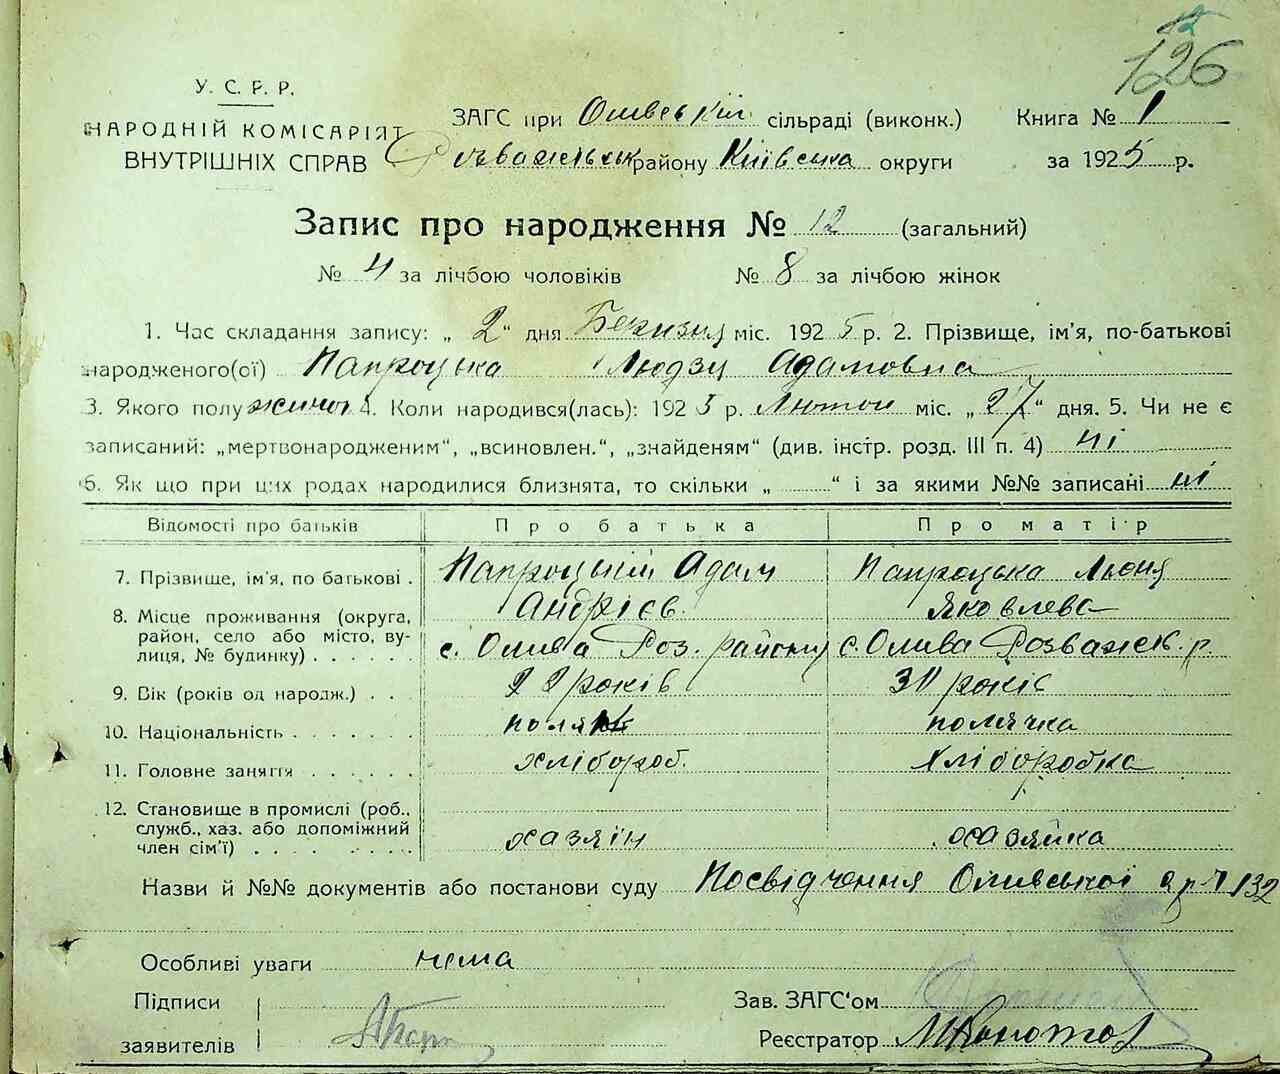 126
У. С. Р. Р.
НАРОДНІЙ КОМІСАРІЯТ
ВНУТРІШНІХ СПРАВ
ЗАГС при Оливській сільраді (виконк.) Книга № 1
району Київська округи за 1925 р.
Запис про народження № 12 (загальний)
№ 4 за лічбою чоловіків № 8 за лічбою жінок
1. Час складання запису: „ 2 “ дня Березня міс. 1925 р. 2. Прізвище, ім'я, по-батькові
народженого(ої) Папроцька Людзя Адамовна
3. Якого полу жіночої 4. Коли народився(лась): 1925 р. Лютого міс. „ 27 “ дня. 5. Чи не є
записаний: „мертвонародженим“, „всиновлен.“, „знайденям“ (див. інстр. розд. III п. 4) ні
6. Як що при цих родах народилися близнята, то скільки „ “ і за якими №№ записані ні
Відомості про батьків Про батька Про матір
7. Прізвище, ім'я, по батькові . Папроцький Адам Андрієв. Папроцька Яковлева
8. Місце проживання (округа, район, село або місто, вулиця, № будинку) с. Олива Роз. району с. Олива Розважев. р.
9. Вік (років од народж.) . . років років
10. Національність поляк полячка
11. Головне заняття хлібороб. хліборобка
12. Становище в промислі (роб., служб., хаз. або допоміжний член сім'ї) хазяін хазяйка
Назви й №№ документів або постанови суду Посвідчення Оливської 132
Особливі уваги нема
Підписи
заявителів
Зав. ЗАГС'ом
Реєстратор